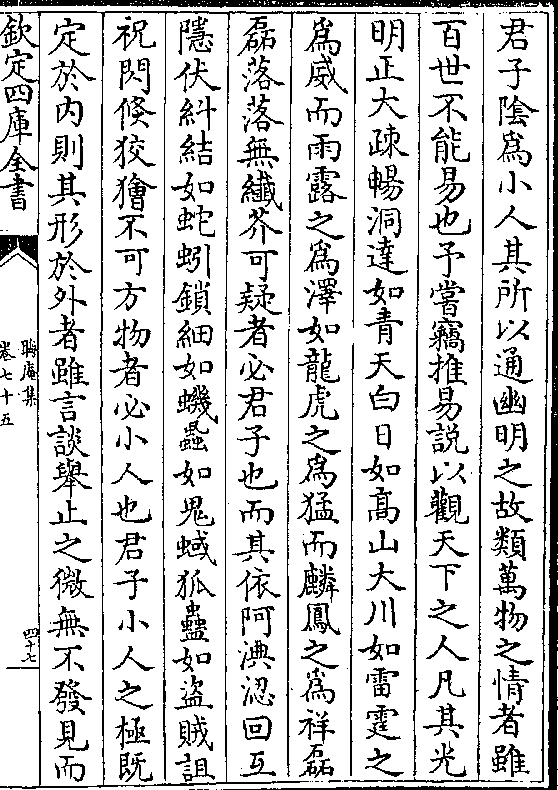 君子陰爲小人其所以通幽明之故類萬物之情者雖
百世不能易也予嘗竊推易説以觀天下之人凡其光
明正大疎暢洞達如青天白日如高山大川如雷霆之
爲威而雨露之爲澤如龍虎之爲猛而麟鳳之爲祥磊
磊落落無纖芥可疑者必君子也而其依阿淟涊回互
隱伏糾結如蛇蚓鎖細如蟣蝨如鬼蜮狐蠱如盜賊詛
祝閃倐狡獪不可方物者必小人也君子小人之極既
定於内則其形於外者雖言談舉止之微無不發見而
欽定四庫全書
晦庵集
卷七十五
四十七